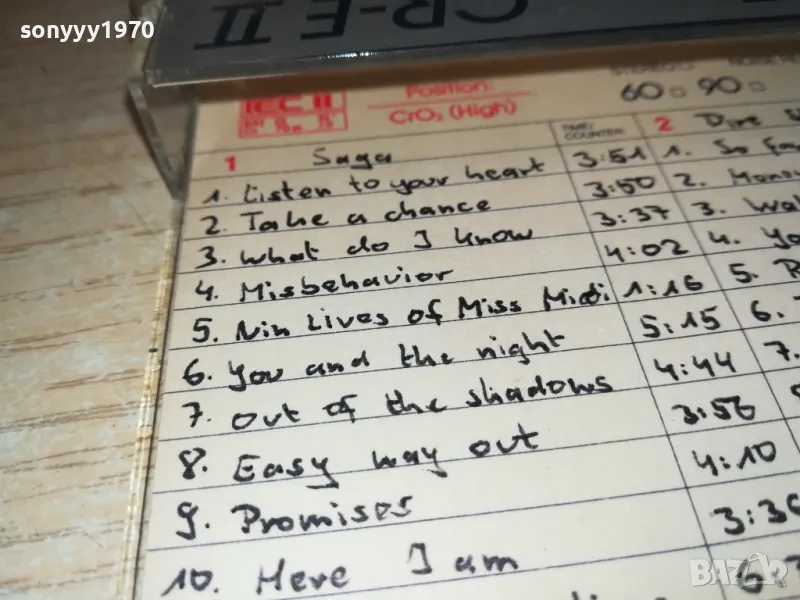 sonyyy1970
CR-E II
IEC II
Position:
CrO₂ (High)
60 90
TIME/
COUNTER
1 Saga
1. Listen to your heart 3:51
2. Take a chance 3:50
3. What do I know 3:37
4. Misbehavior 4:02
5. Nin Lives of Miss Midi 1:16
6. You and the night 5:15
7. Out of the shadows 4:44
8. Easy way out 3:56
9. Promises 4:10
10. Here I am
2 Dire
1. So
2.
3.
4.
5.
6.
7.
BAZAR